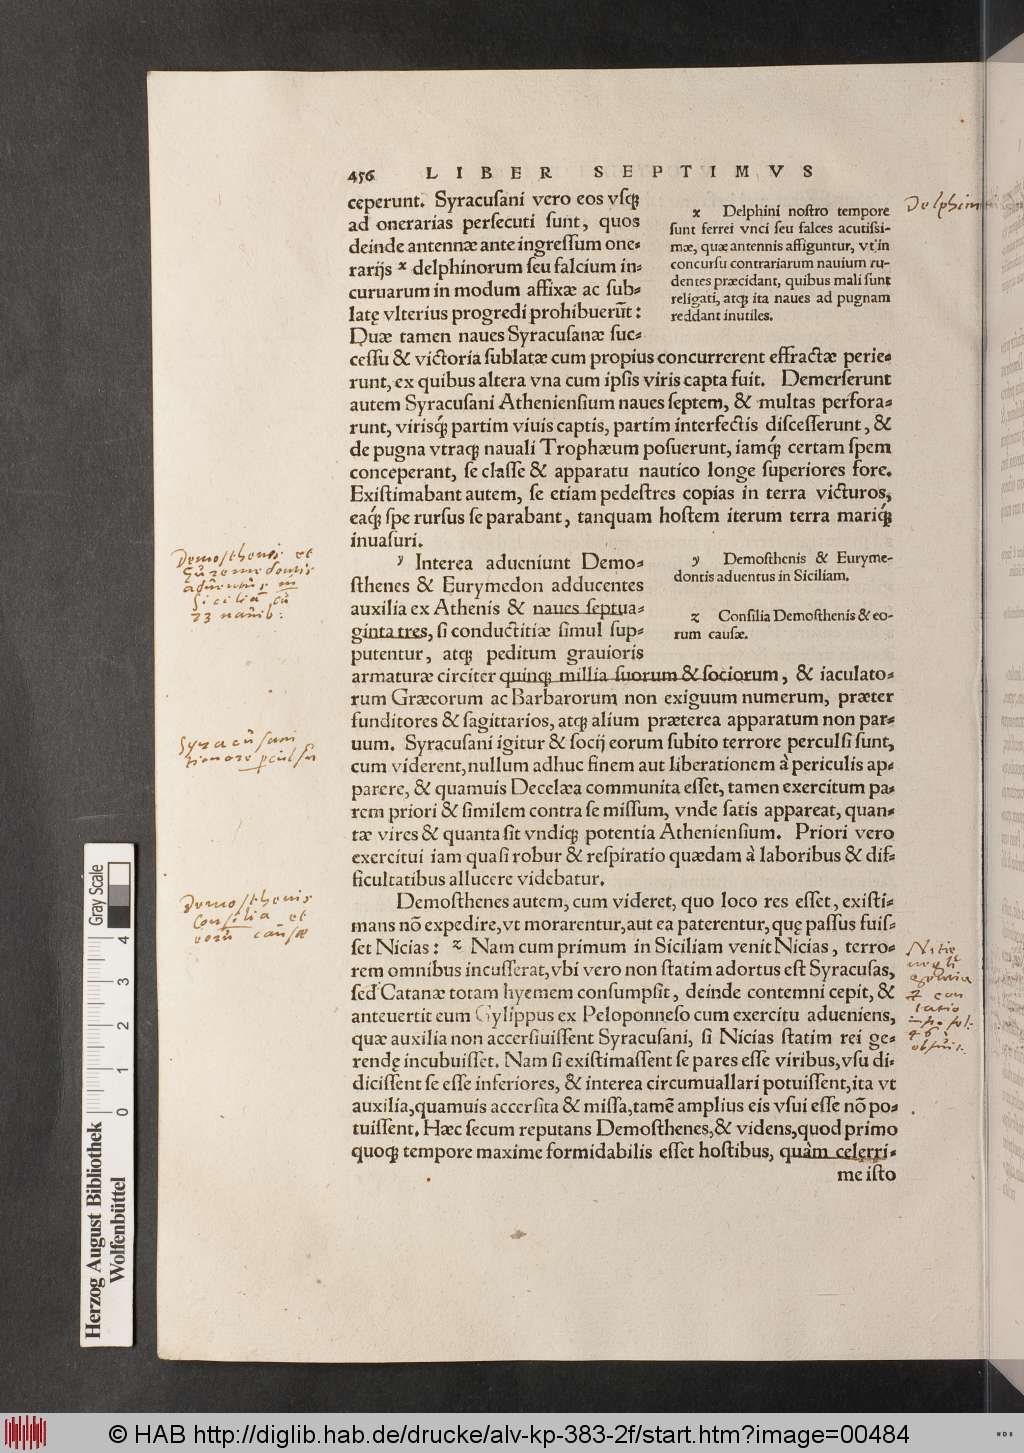 456 LIBER SEPTIMVS
ceperunt. Syracuſani vero eos vſqꝫ
ad onerarias perſecuti ſunt, quos
deinde antennæ ante ingreſſum one⸗
rarijs x delphinorum ſeu falcium in⸗
curuarum in modum affixæ ac ſub⸗
latę vlterius progredi prohibuerũt:
Duæ tamen naues Syracuſanæ ſuc⸗
x Delphini noſtro tempore
ſunt ferrei vnci ſeu falces acutiſsi-
mæ, quæ antennis affiguntur, vt in
concurſu contrariarum nauium ru-
dentes præcidant, quibus mali ſunt
religati, atqꝫ ita naues ad pugnam
reddant inutiles.
Delphin
ceſſu & victoria ſublatæ cum propius concurrerent effractæ perie⸗
runt, ex quibus altera vna cum ipſis viris capta fuit. Demerſerunt
autem Syracuſani Athenienſium naues ſeptem, & multas perfora⸗
runt, virisqꝫ́ partim viuis captis, partim interfectis diſceſſerunt, &
de pugna vtraqꝫ nauali Trophæum poſuerunt, iamqꝫ́ certam ſpem
conceperant, ſe claſſe & apparatu nautico longe ſuperiores fore.
Exiſtimabant autem, ſe etiam pedeſtres copias in terra victuros,
eaqꝫ́ ſpe rurſus ſe parabant, tanquam hoſtem iterum terra mariqꝫ́
inuaſuri.
y Interea adueniunt Demo⸗
ſthenes & Eurymedon adducentes
auxilia ex Athenis & naues ſeptua⸗
ginta tres, ſi conductitiæ ſimul ſup⸗
putentur, atqꝫ peditum grauioris
y Demoſthenis & Euryme-
dontis aduentus in Siciliam.
z Conſilia Demoſthenis & eo-
rum cauſæ.
Demosthenis et
Eurÿmedontis
aduentus in
Siciliã cũ
73 navib:
armaturæ circiter quinqꝫ millia ſuorum & ſociorum, & iaculato⸗
rum Græcorum ac Barbarorum non exiguum numerum, præter
funditores & ſagittarios, atqꝫ alium præterea apparatum non par⸗
uum. Syracuſani igitur & ſocij eorum ſubito terrore perculſi ſunt,
cum viderent, nullum adhuc finem aut liberationem à periculis ap⸗
parere, & quamuis Decelæa communita eſſet, tamen exercitum pa⸗
rem priori & ſimilem contra ſe miſſum, vnde ſatis appareat, quan⸗
tæ vires & quanta ſit vndiqꝫ potentia Athenienſium. Priori vero
exercitui iam quaſi robur & reſpiratio quædam à laboribus & dif⸗
ficultatibus allucere videbatur.
Syracusani
timore pculsi
Demoſthenes autem, cum videret, quo loco res eſſet, exiſti⸗
mans nõ expedire, vt morarentur, aut ea paterentur, quę paſſus fuiſ⸗
ſet Nicias: z Nam cum primum in Siciliam venit Nicias, terro⸗
rem omnibus incuſſerat, vbi vero non ſtatim adortus eſt Syracuſas,
ſed Catanæ totam hyemem conſumpſit, deinde contemni cepit, &
anteuertit eum Gylippus ex Peloponneſo cum exercitu adueniens,
quæ auxilia non accerſiuiſſent Syracuſani, ſi Nicias ſtatim rei ge⸗
rendę incubuiſſet. Nam ſi exiſtimaſſent ſe pares eſſe viribus, vſu di⸗
diciſſent ſe eſſe inferiores, & interea circumuallari potuiſſent, ita vt
auxilia, quamuis accerſita & miſſa, tamẽ amplius eis vſui eſſe nõ po⸗
tuiſſent. Hæc ſecum reputans Demoſthenes, & videns, quod primo
quoqꝫ tempore maxime formidabilis eſſet hoſtibus, quàm celerri⸗
me iſto
Demosthenis
Consilia et
eorũ causæ
Herzog August Bibliothek
Wolfenbüttel
Gray Scale
0 1 2 3 4
© HAB http://diglib.hab.de/drucke/alv-kp-383-2f/start.htm?image=00484